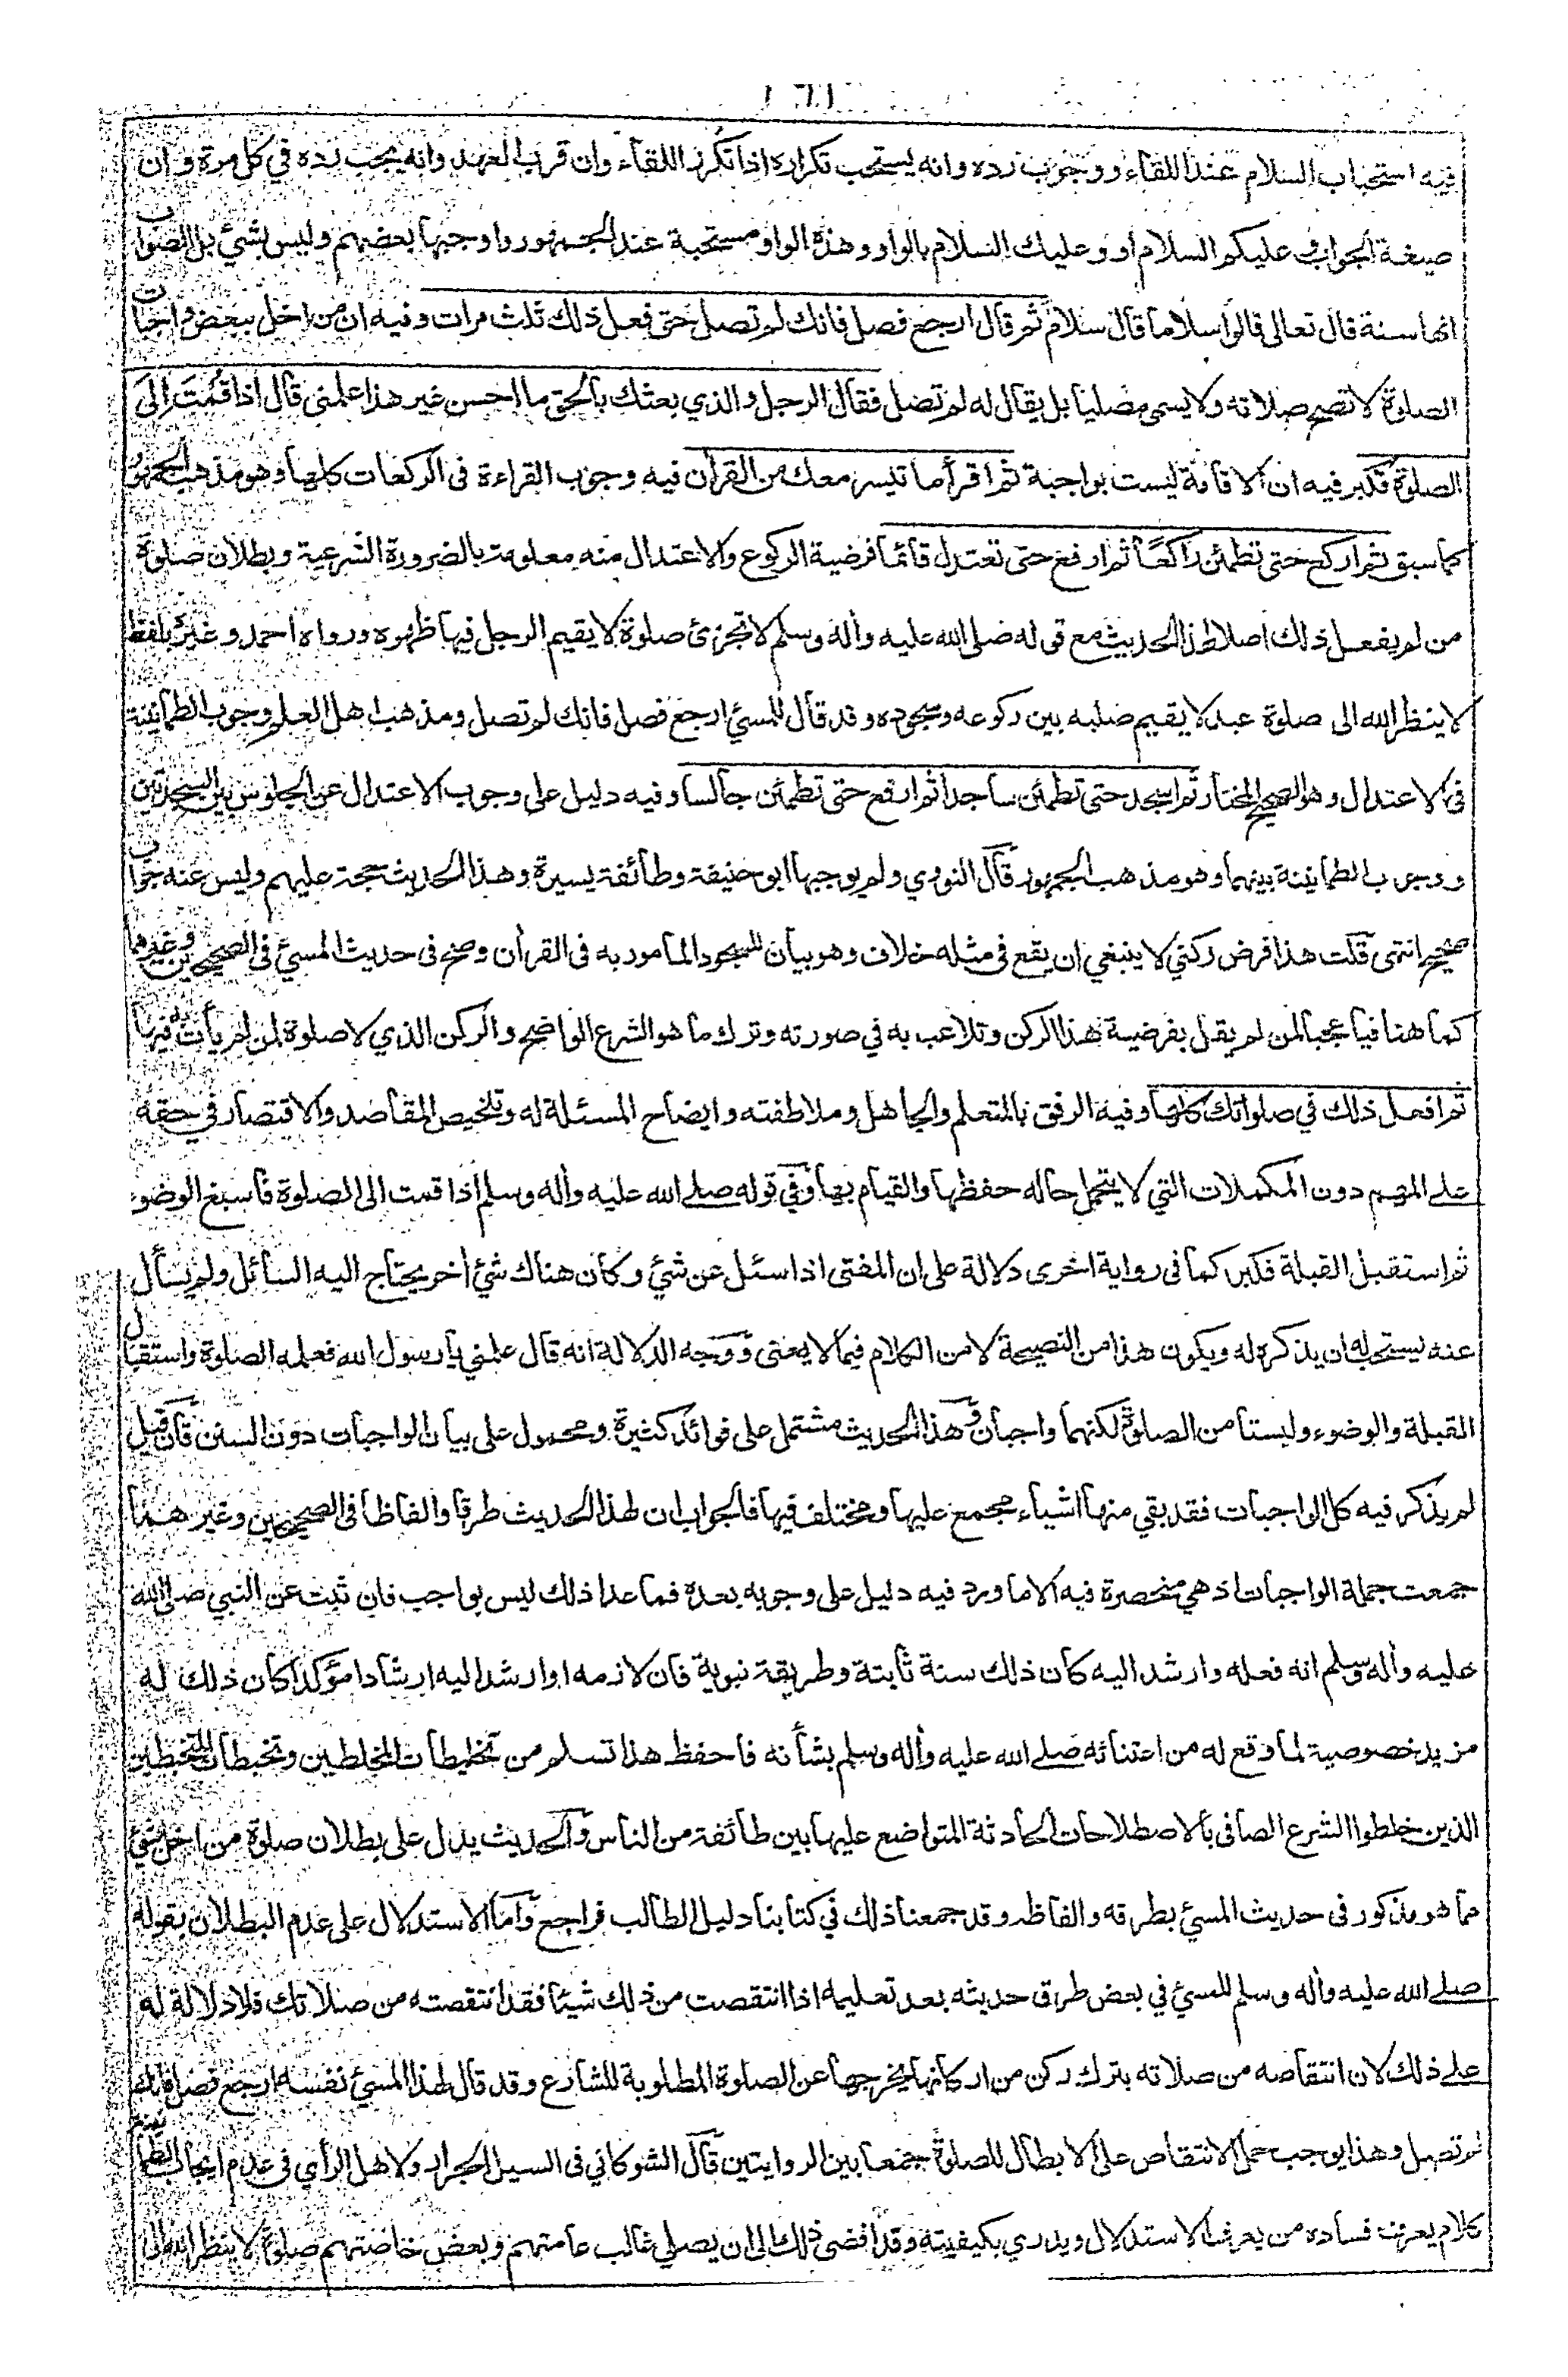 ١٦١
فيه استحباب السلام عند اللقاء ووجوب رده وانه يستحب تكراره اذا تكرر اللقاء وان قرب العهد وانه يجب رده في كل مرة وان
صيغة الجواب وعليكم السلام او وعليك السلام بالواو وهذه الواو مستحبة عند الجمهور واوجبها بعضهم وليس بشئ بل الصواب
انها سنة قال تعالى قالوا سلاما قال سلام ثم قال ارجع فصل فانك لم تصل حتى فعل ذلك ثلث مرات وفيه ان من اخل ببعض واجبات
الصلوة لا تصح صلاته ولا يسمى مصليا بل يقال له لم تصل فقال الرجل والذي بعثك بالحق ما احسن غير هذا علمني قال اذا قمت الى
الصلوة فكبر فيه ان الاقامة ليست بواجبة ثم اقرأ ما تيسر معك من القرأن فيه وجوب القراءة فى الركعات كلها وهو مذهب الجمهور
كما سبق ثم اركع حتى تطمئن راكعا ثم ارفع حتى تعتدل قائما فرضية الركوع والاعتدال منه معلومة بالضرورة الشرعية وبطلان صلوة
من لم يفعل ذلك اصلا لهذا الحديث مع قوله صلى الله عليه وأله وسلم لا تجزئ صلوة لا يقيم الرجل فيها ظهره ورواه احمد وغيره بلفظ
لا ينظر الله الى صلوة عبد لا يقيم صلبه بين ركوعه وسجوده وقد قال للمسئ ارجع فصل فانك لم تصل ومذهب اهل العلم وجوب الطمانينة
فى الاعتدال وهو الصحيح المختار ثم اسجد حتى تطمئن ساجدا ثم ارفع حتى تطمئن جالسا وفيه دليل على وجوب الاعتدال عن الجلوس بين السجدتين
ووجوب الطمانينة بينهما وهو مذهب الجمهور قال النووي ولم يوجبها ابو حنيفة وطائفة يسيرة وهذا الحديث حجة عليهم وليس عنه جواب
صحيح انتهى قلت هذا فرض ركني لا ينبغي ان يقع فى مثله خلاف وهو بيان للسجود المأمور به فى القرأن وصح فى حديث المسئ فى الصحيحين وغيرهما
كما هنا فيا عجبا لمن لم يقل بفرضية هذا الركن وتلاعب به في صورته وترك ما هو الشرع الواضح والركن الذي لا صلوة لمن لم يأت به فيها
ثم افعل ذلك في صلواتك كلها وفيه الرفق بالمتعلم والجاهل وملاطفته وايضاح المسئلة له وتلخيص المقاصد والاقتصار في حقه
على المهم دون المكملات التي لا يتحمل حاله حفظها والقيام بها وفي قوله صلى الله عليه وأله وسلم اذا قمت الى الصلوة فأسبغ الوضوء
ثم استقبل القبلة فكبر كما فى رواية اخرى دلالة على ان المفتى اذا سئل عن شئ وكان هناك شئ أخر يحتاج اليه السائل ولم يسأل
عنه يستحب له ان يذكره له ويكون هذا من النصيحة لا من الكلام فيما لا يعنى ووجه الدلالة انه قال علمني يا رسول الله فعلمه الصلوة واستقبال
القبلة والوضوء وليستا من الصلوة لكنهما واجبان وهذا الحديث مشتمل على فوائد كثيرة ومحمول على بيان الواجبات دون السنن فان قيل
لم يذكر فيه كل الواجبات فقد بقي منها اشياء مجمع عليها ومختلف فيها فالجواب ان لهذا الحديث طرقا والفاظا فى الصحيحين وغيرهما
جمعت جملة الواجبات اذ هي منحصرة فيه الا ما ورد فيه دليل على وجوبه بعده فما عدا ذلك ليس بواجب فان ثبت عن النبي صلى الله
عليه وأله وسلم انه فعله وارشد اليه كان ذلك سنة ثابتة وطريقة نبوية فان لازمه او ارشد اليه ارشادا مؤكدا كان ذلك له
مزيد خصوصية لما وقع له من اعتنائه صلى الله عليه وأله وسلم بشأنه فاحفظ هذا تسلم من تخليطات المخلطين وتخبطات المتخبطين
الذين خلطوا الشرع الصافى بالاصطلاحات الحادثة المتواضع عليها بين طائفة من الناس والحديث يدل على بطلان صلوة من اخل بشئ
مما هو مذكور فى حديث المسئ بطرقه والفاظه وقد جمعنا ذلك في كتابنا دليل الطالب فراجع وأما الاستدلال على عدم البطلان بقوله
صلى الله عليه وأله وسلم للمسئ في بعض طرق حديثه بعد تعليمه اذا انتقصت من ذلك شيئا فقد انتقصته من صلاتك فلا دلالة له
على ذلك لان انتقاصه من صلاته بترك ركن من اركانها يخرجها عن الصلوة المطلوبة للشارع وقد قال لهذا المسئ نفسه ارجع فصل فانك
لم تصل وهذا يوجب حمل الانتقاص على الابطال للصلوة جمعا بين الروايتين قال الشوكاني فى السيل الجرار ولاهل الرأي فى عدم ايجاب الطمانينة
كلام يعرف فساده من يعرف الاستدلال ويدري بكيفيته وقد افضى ذلك الى ان يصلي غالب عامتهم وبعض خاصتهم صلوة لا ينظر الله الى